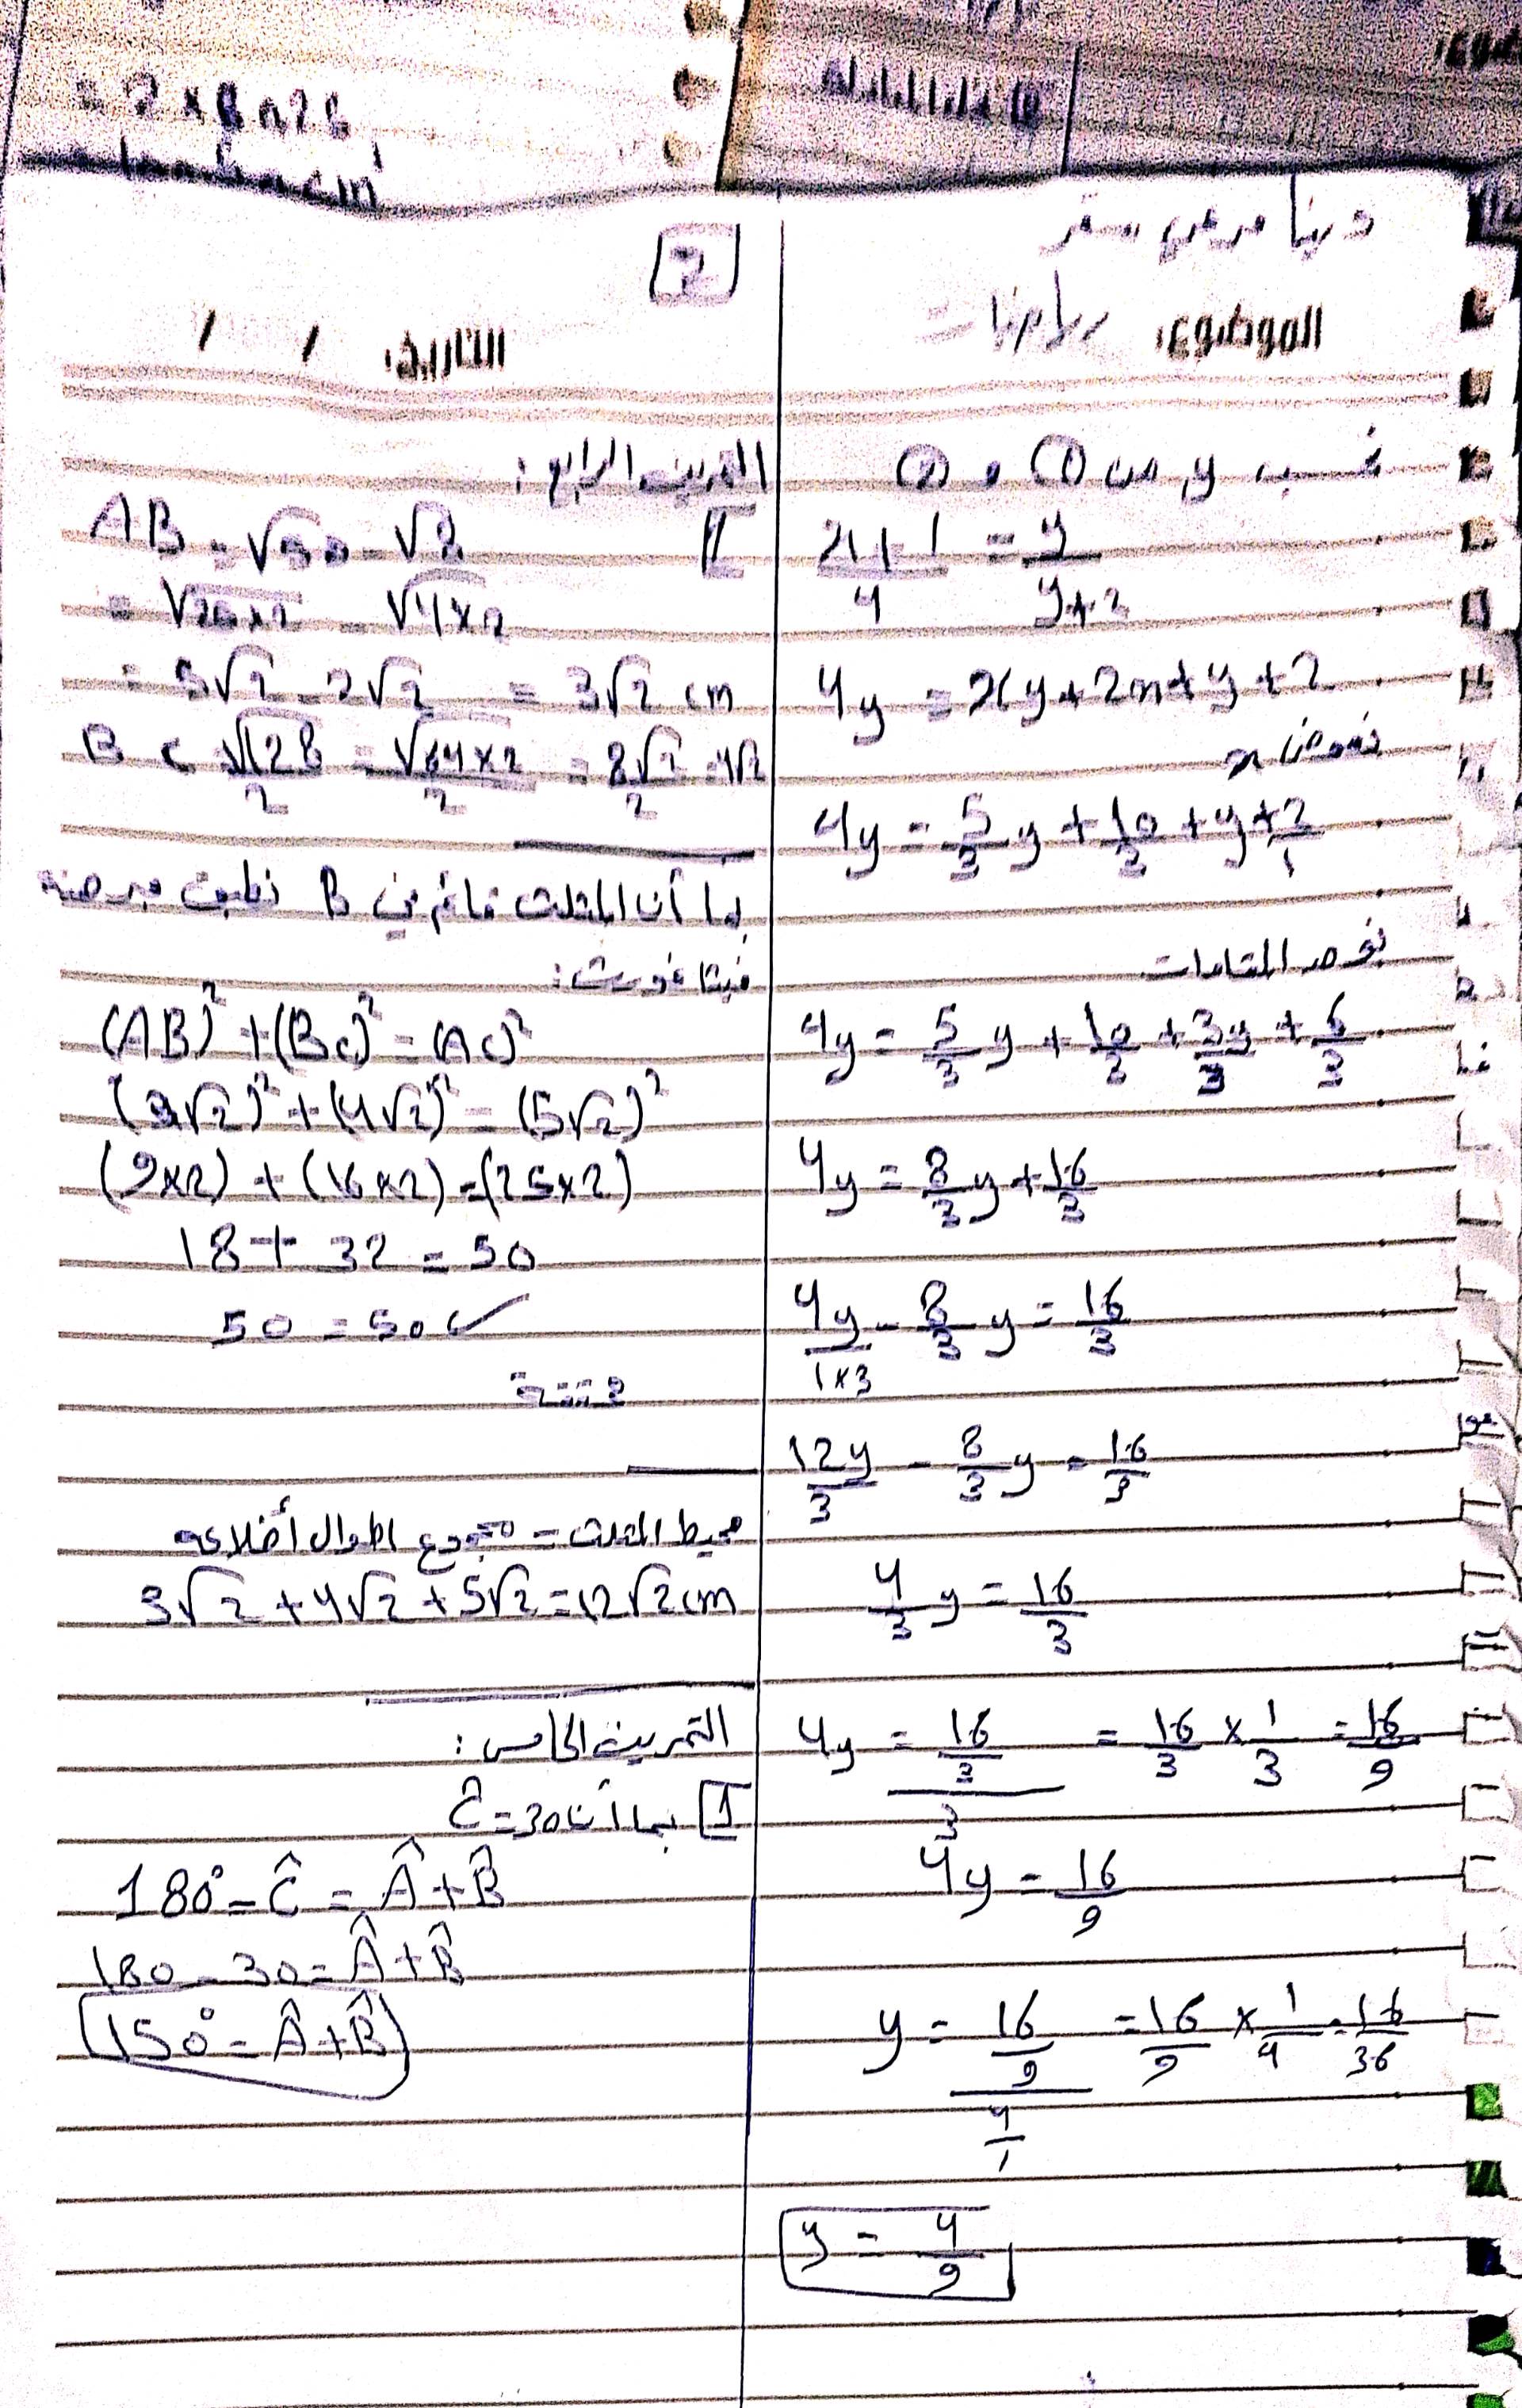 = 2 × 8
cm
دينا مرعي سقر
7
الموضوع: رياضيات
التاريخ: / /
نحسب y من ① و ②
x+1/4 = y/y+2
4y = xy + 2x + y + 2
نعوض x
4y = 5/3 y + 10/3 + y + 2/1
نوحد المقامات
4y = 5/3 y + 10/3 + 3y/3 + 6/3
4y = 8/3 y + 16/3
4y/1×3 - 8/3 y = 16/3
12y/3 - 8/3 y = 16/3
4/3 y = 16/3
4y = 16/3/3 = 16/3 × 1/3 = 16/9
4y = 16/9
y = 16/9/4/1 = 16/9 × 1/4 = 16/36
y = 4/9
التمرين الرابع:
1 AB = √50 - √8
= √25×2 - √4×2
= 5√2 - 2√2 = 3√2 cm
BC √128/2 = √64×2/2 = 8√2/2 = 4√2
بما أن المثلث قائم في B نطبق مبرهنة
فيثاغورث:
(AB)² + (BC)² = (AC)²
(3√2)² + (4√2)² = (5√2)²
(9×2) + (16×2) = (25×2)
18 + 32 = 50
50 = 50 ✓
محققة
محيط المثلث = مجموع اطوال أضلاعه
3√2 + 4√2 + 5√2 = 12√2 cm
التمرين الخامس:
1 بما أن Ĉ = 30
180° - Ĉ = Â + B̂
180 - 30 = Â + B̂
150° = Â + B̂